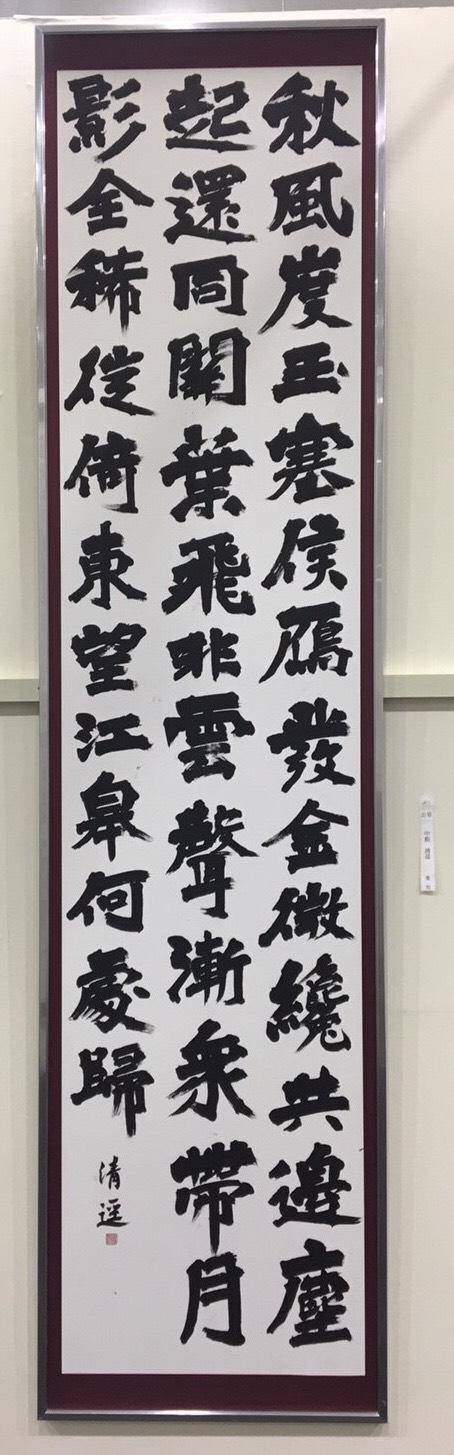 秋風度玉塞侯鴈發金微纔共邊塵
起還同關葉飛非雲聲漸衆帶月
影全稀從倚東望江皐何處歸
清遥